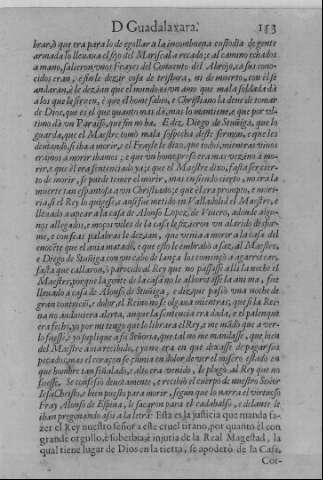 D Guadalaxara. 153
brar, ò que era para lo de egollar a la inoumbuena custodia de gente
armada lo lleuaua el fijo del Mariscal a recado; e al camino echados
a mano, salieron vnos Frayes del Conuento del Abrojo, ca sus cono-
cidos eran, e sin le dezir cosa de tristura, ni de muerte, con el se
andaran, e le dezian que el mundo es vn amo que mala soldada da
a los que le siruen, è que el home sabio, e Christiano la deue de tomar
de Dios, que es el que quanto mas dà, mas lo mantiene, e que por vl-
timo dà vn Paraiso, que fin no ha. E dez. Diego de Stuñiga, que lo
guarda, que el Maestre tomò mala sospecha deste sermon, e que les
demandò, si iba a morir, e el Frayle le dixo, que todos, mientras viuos
eramos a morir ibamos; e que vn home preso era mas vezino a mo-
rir, e que èl era sentenciado ya; que el Maestre dixo, fasta ser cier-
to de morir, se puede temer el morir, mas en siendo cierto, no era la
muerte tan espantosa a vn Christiano; e que el era prompto, e mori-
ria, si el Rey lo quiges; e ansi fue metido en Valladolid el Maestre, e
lleuado a apear a la casa de Alonso Lopez, de Viuero, adonde algu-
nos allegados, e moços viles de la casa le fizieron vn alarido desfor-
me, e con feas palabras le dezian, que venia a morar a la casa del
encorte que el auia matado, e que esto le embrabò a faz, al Maestre,
e Diego de Stuñiga con vn cabo de lança los començò a agarrotear,
fasta que callaron, ò pareciò al Rey que no passasse alli la noche el
Maestre, porque la gente de la casa no le alborotasse la anima, fue
lleuado a casa de Alonso de Stuñiga, e dez, que passò vna noche de
gran contricio, e dolor, el Reino no se olgaua mientras, que si la Rei-
na no anduuiera alerta, aunque la sentencia era dada, e el palenque
era fecho, yo por mi tengo que lo librara el Rey, e me miãdo que a ver-
lo fuesse, e yo supliquè a su Señora, que tal no me mandasse, que bien
del Maestre auia recibido, e yo me era en que dexasse de pagar sus
pecados, mas el coraçon se gumia en dolor, de ver el misero estado en
que hombre tan señalado, e alto era venido, le plogò al Rey que no
fuesse, Se confessò deuotamente, e recibiò el cuerpo de nuestro Señor
Iesu Christo, e bien puesto para morir, segun que lo narra el virtuoso
Fray Alonso de Espina, le sacaron para el cadahalso, e delante le
iban pregonando assi a la letra: Esta es la justicia que manda fa-
zer el Rey nuestro señor a este cruel tirano, por quanto èl con
grande orgullo, è soberbia, è injuria de la Real Magestad, la
qual tiene lugar de Dios en la tierra, se apoderò de la Casa,
Cor-